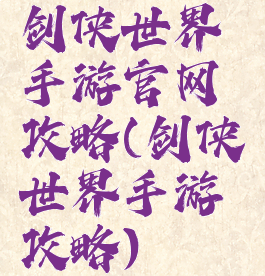 剑侠世界
手游官网
攻略(剑侠
世界手游
攻略)